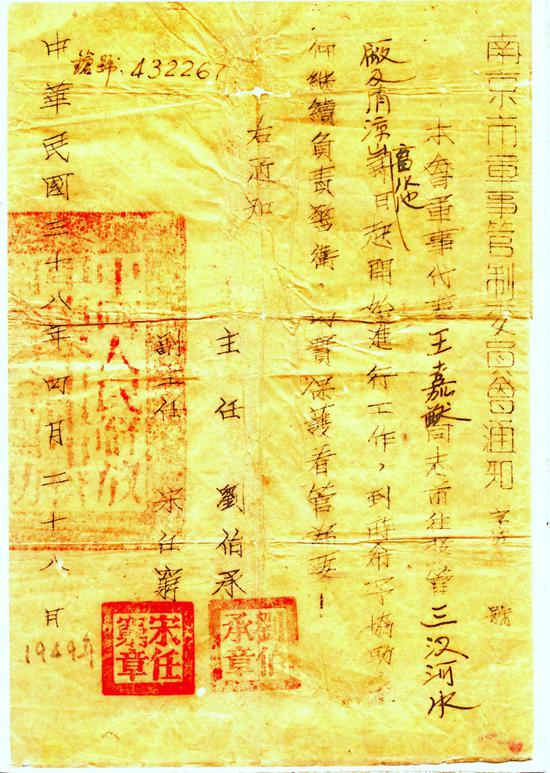 南京市軍事管制委員會通知 字第 號
本會軍事代表王嘉猷同志前往接管三汊河水
廠及清涼山蓄水池 即日起開始進行工作，到時希予協助
仰繼續負責警衛，切實保護看管為要！
右通知
主任 劉伯承
副主任 宋任窮
中華民國三十八年四月二十八日
鎗號：432267
1949年
中國人民解放
劉伯承章
宋任窮章